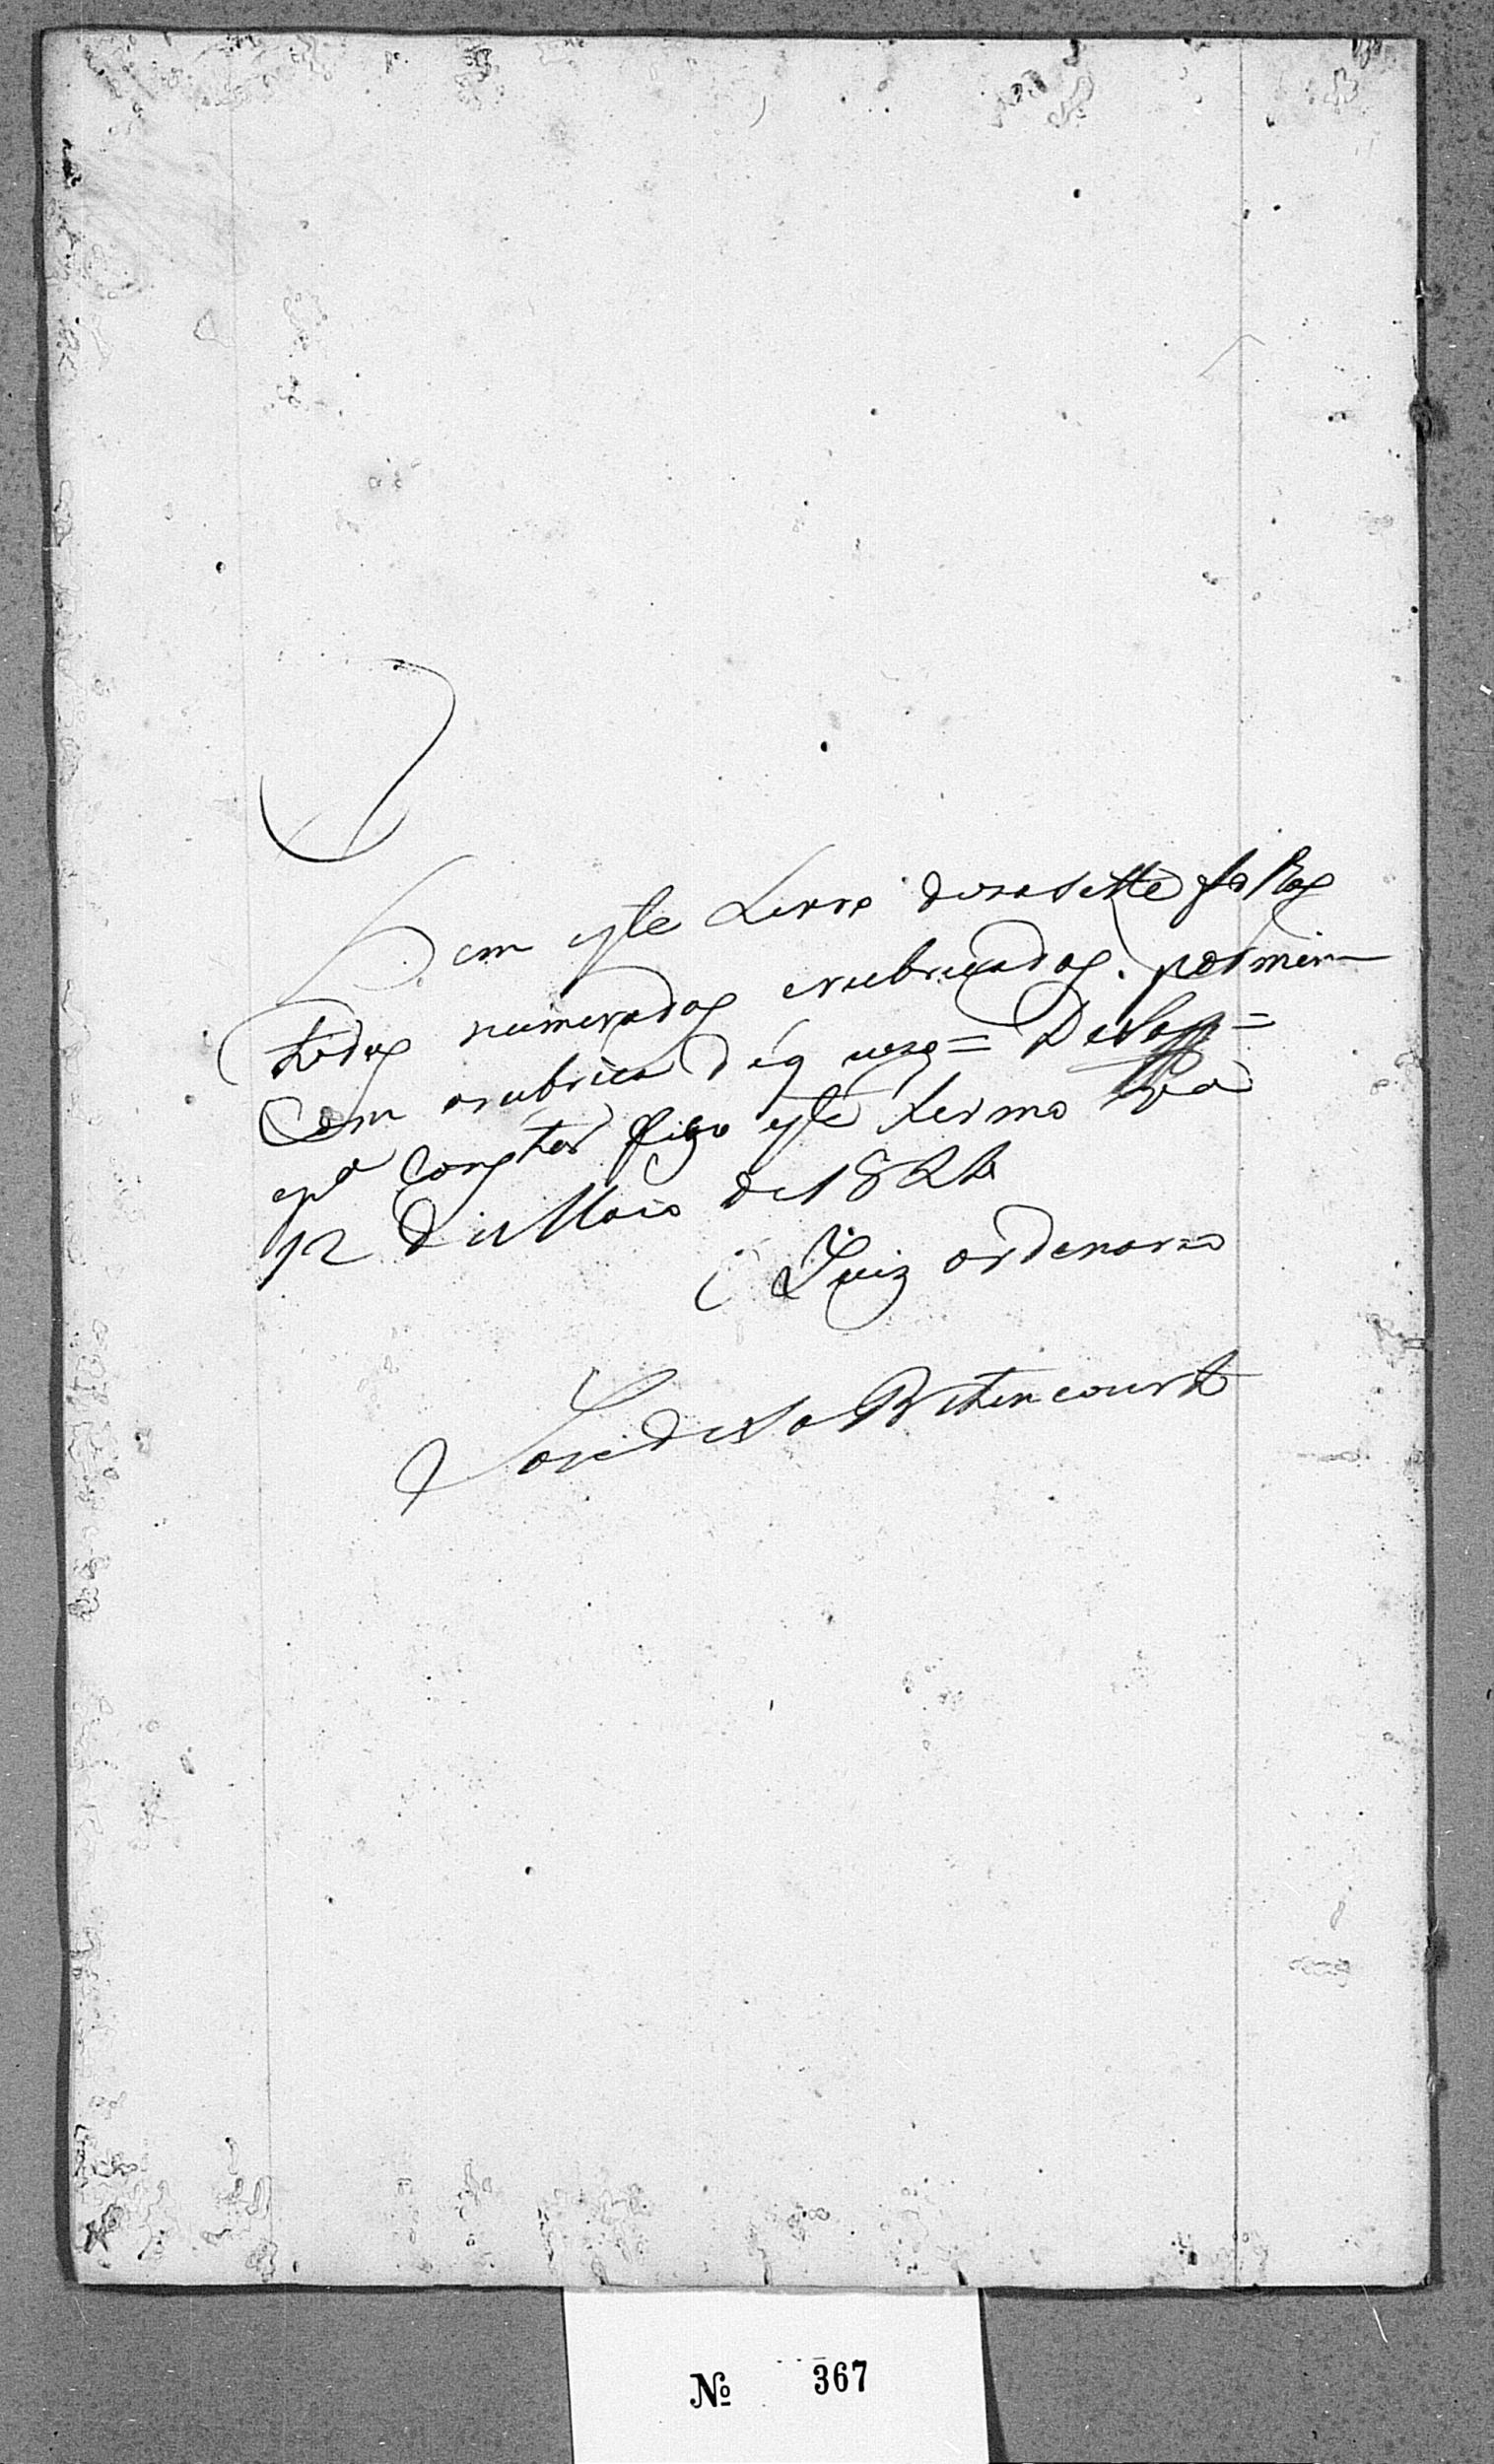 Tem este Livro dezasette folhas
todas numeradas erubricadas. por mim
Com arubrica deq uzo = DeSa =
epª Constar fis este termo Vª
12 de Maio de 1824
O Juiz ordenario
Joze deSa Bitencourt
№ 367